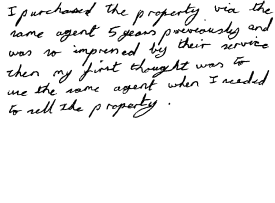 I purchased the property via the
same agent 5 years previously and
was so impressed by their service
then my first thought was to
use the same agent when I needed
to sell the property.